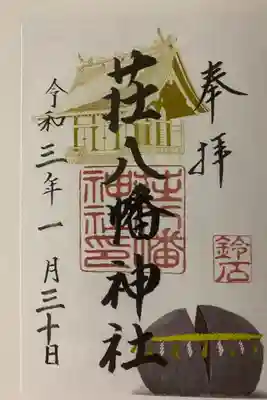 奉拝
荘八幡神社
荘八幡
神社印
鈴石
令和三年一月三十日